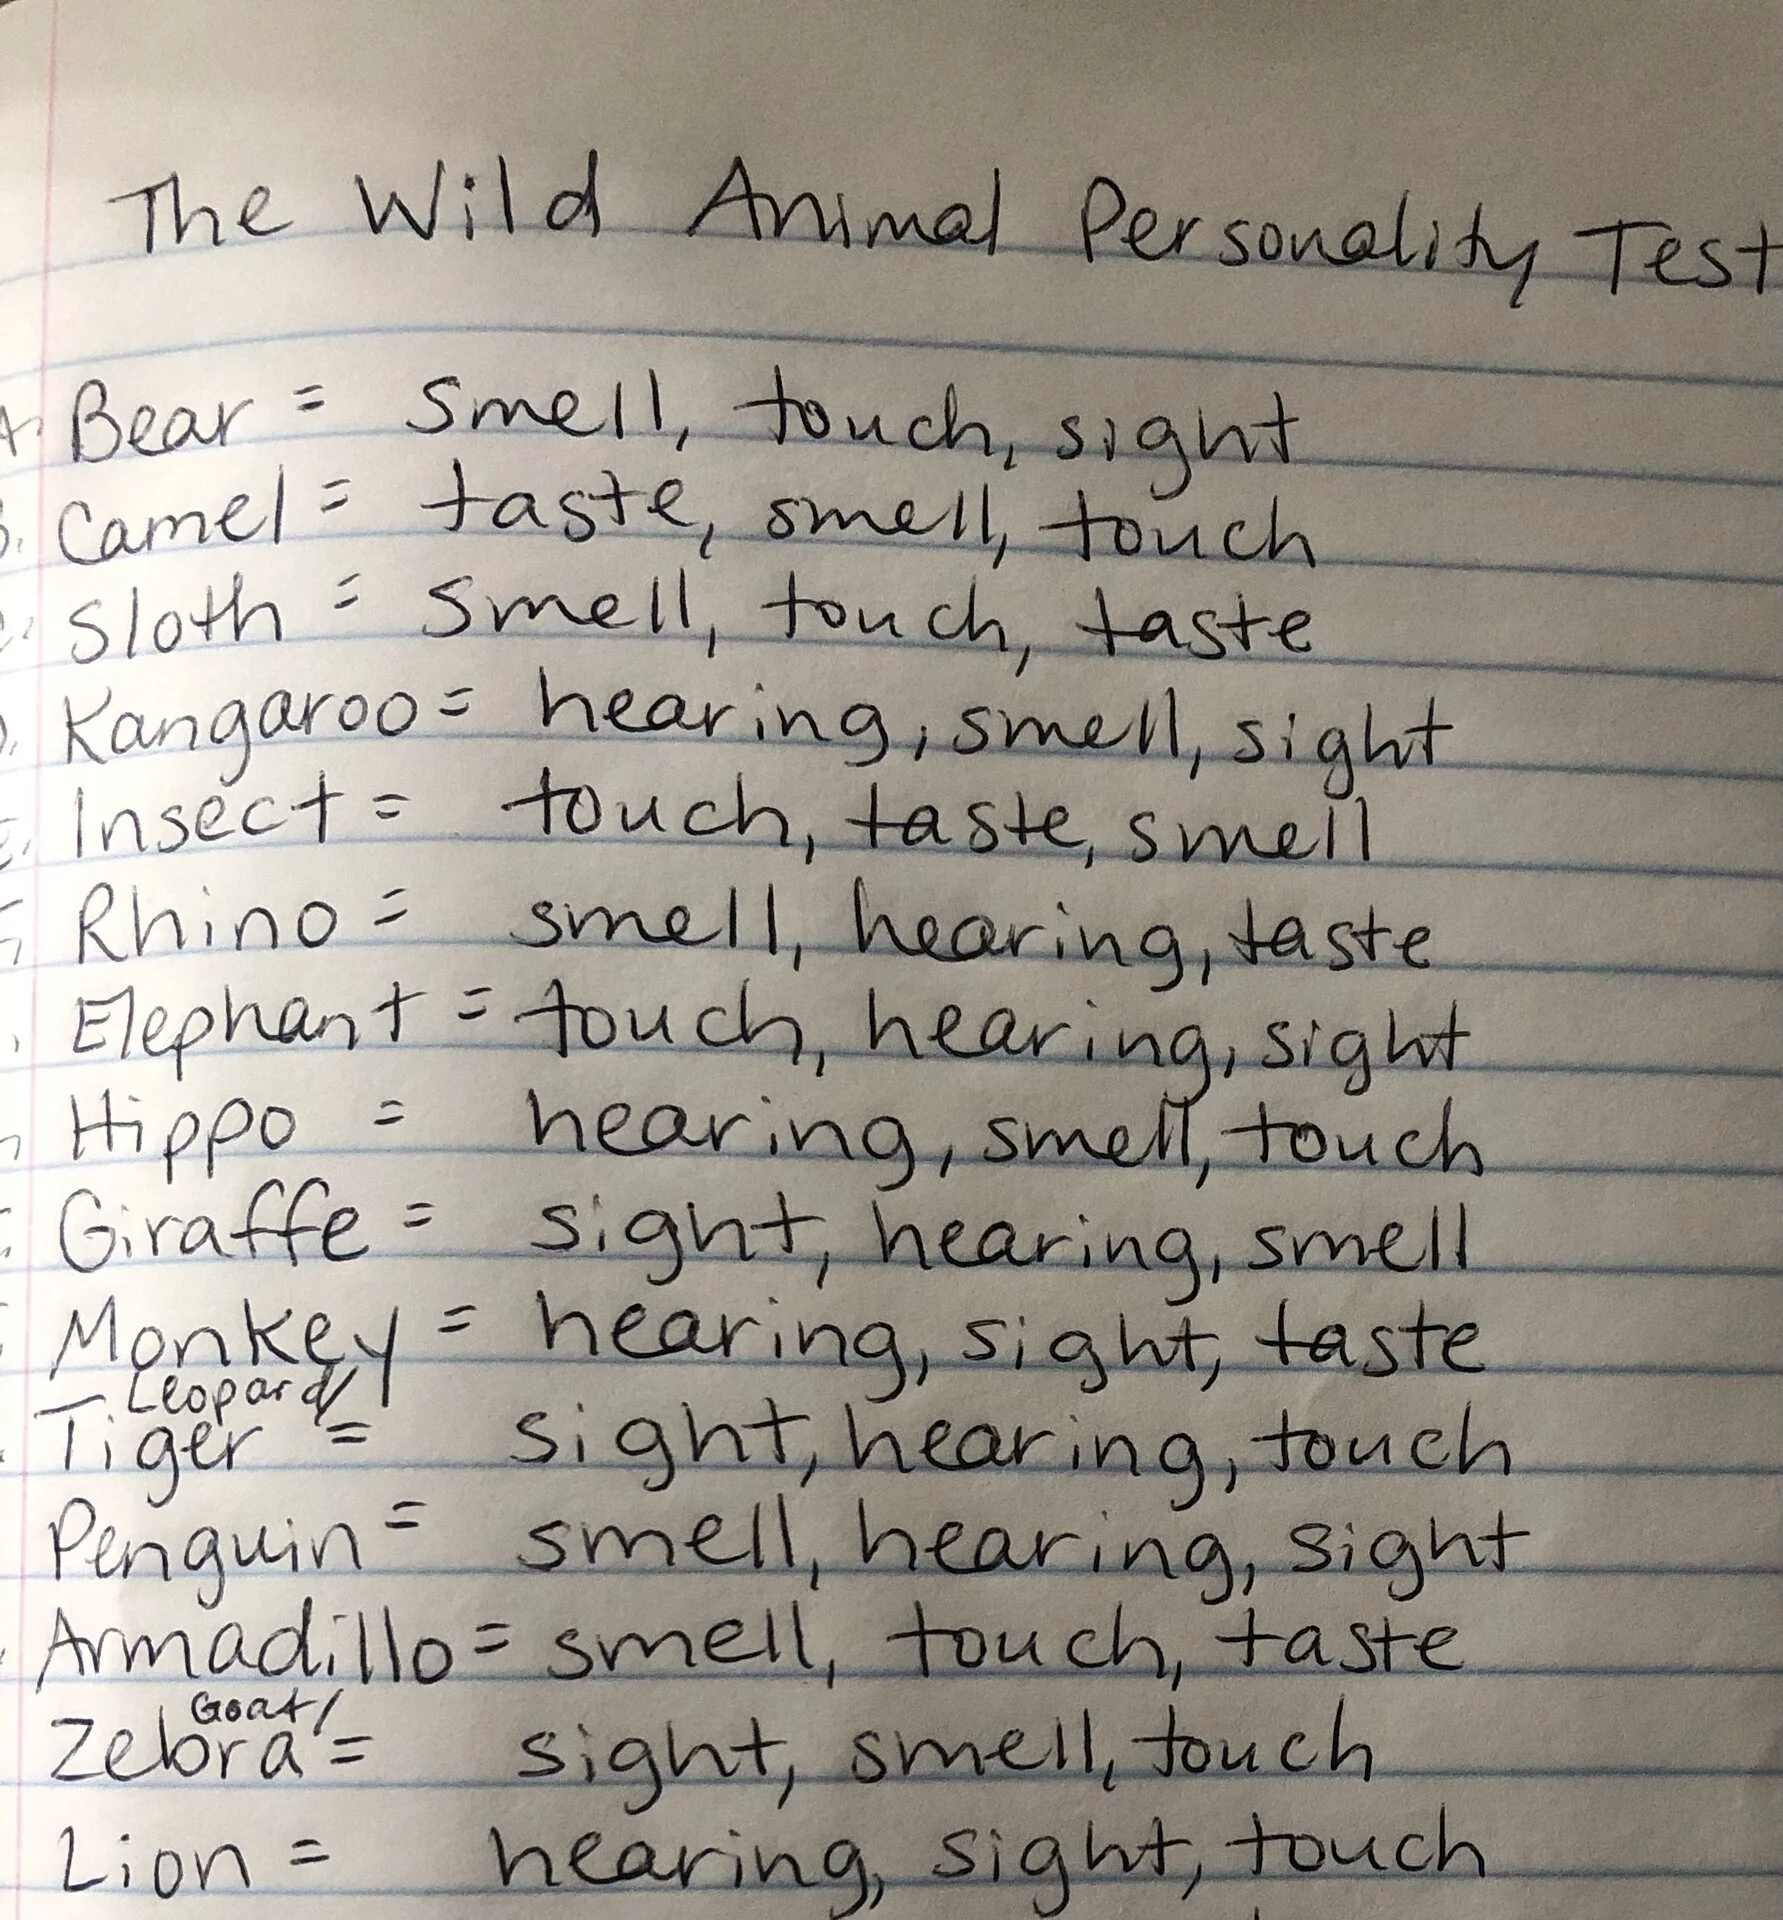 The Wild Animal Personality Test
A. Bear = smell, touch, sight
B. Camel = taste, smell, touch
Sloth = smell, touch, taste
Kangaroo = hearing, smell, sight
Insect = touch, taste, smell
Rhino = smell, hearing, taste
Elephant = touch, hearing, sight
Hippo = hearing, smell, touch
Giraffe = sight, hearing, smell
Monkey = hearing, sight, taste
Leopard/
Tiger = sight, hearing, touch
Penguin = smell, hearing, sight
Armadillo = smell, touch, taste
Goat/
Zebra = sight, smell, touch
Lion = hearing, sight, touch